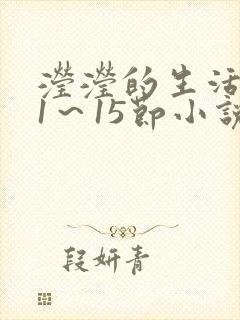 瀅瀅的生活
1～15節小說
段妍青